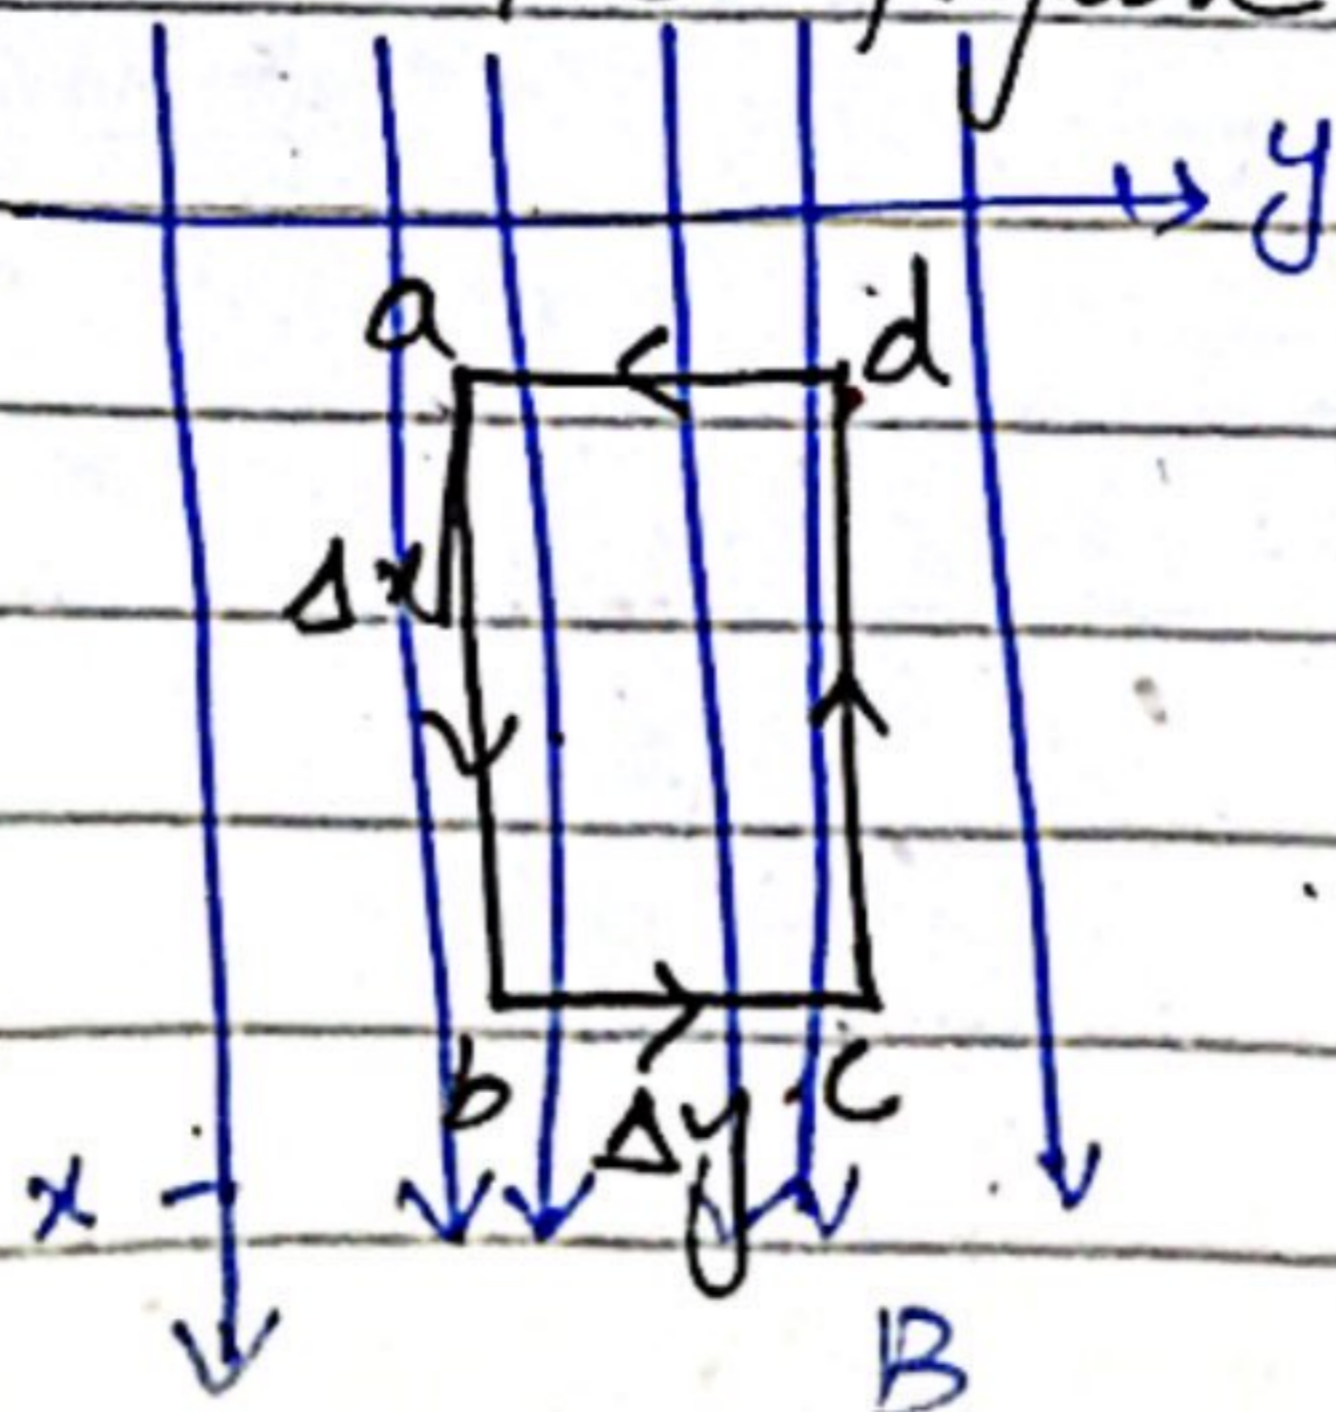 y
a d
Δx
b Δy c
x
B